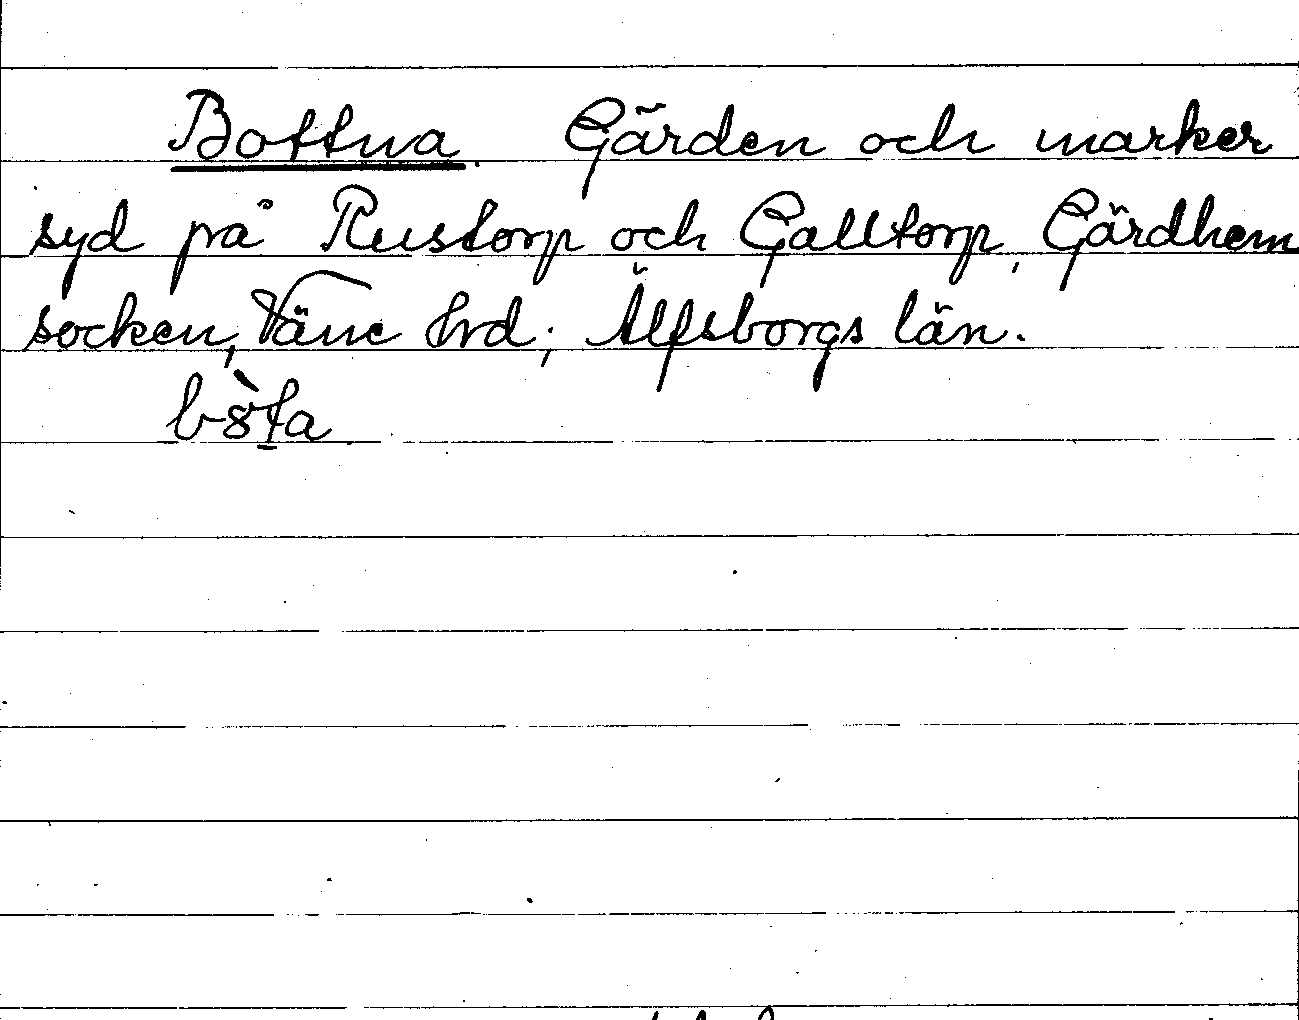 Bottna. Gärden och marker
syd på Rustorp och Galltorp, Gärdhem
socken, Väne Hrd; Älfsborgs län.